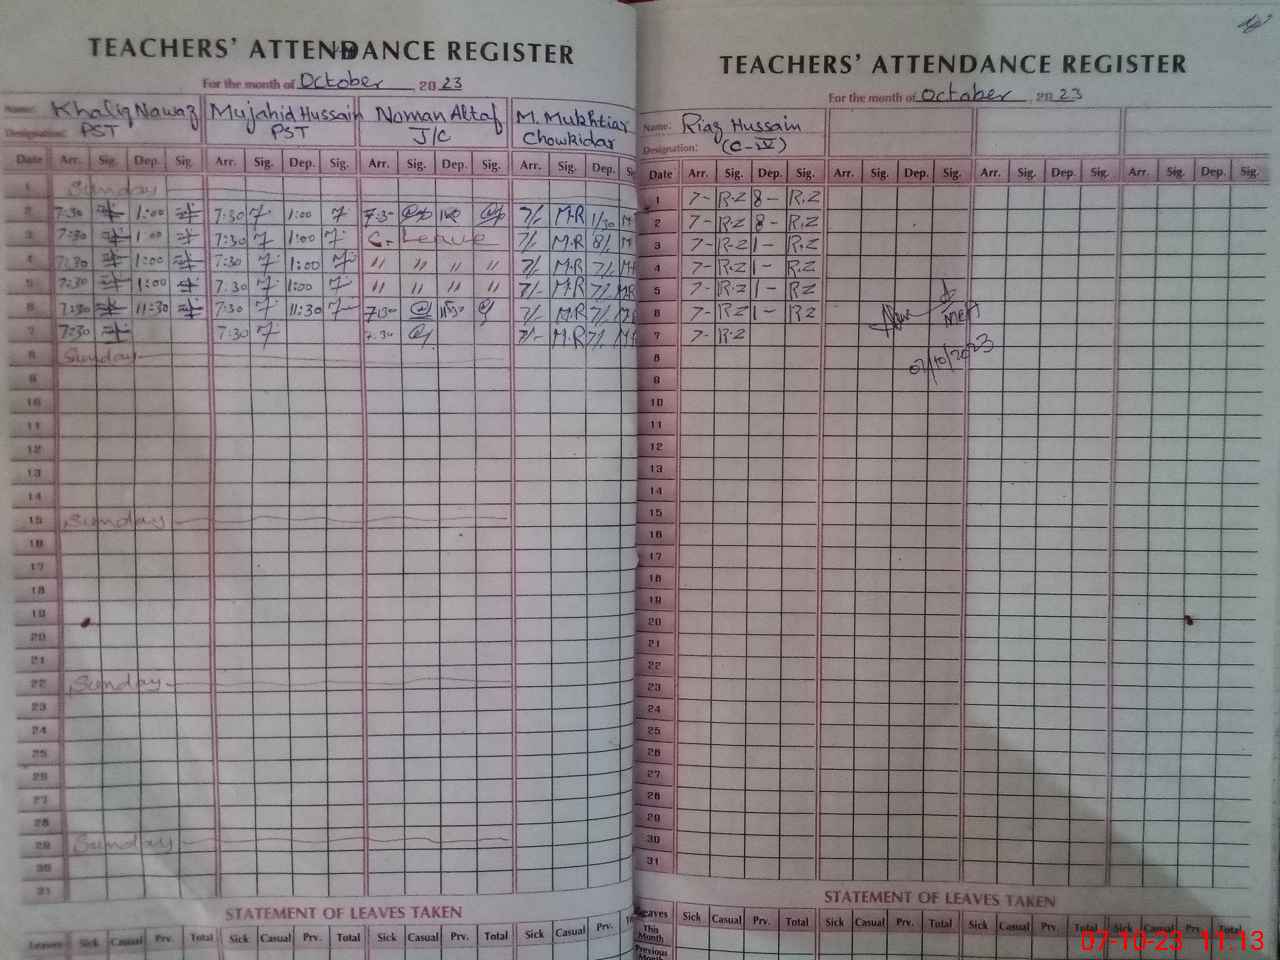 TEACHERS' ATTENDANCE REGISTER
For the month of October, 2023
Name: Khaliq Nawaz Mujahid Hussain Noman Altaf M. Mukhtiar
Designation: PST PST J/C Chowkidar
Date Arr. Sig. Dep. Sig. Arr. Sig. Dep. Sig. Arr. Sig. Dep. Sig. Arr. Sig. Dep.
1 Sunday
2 7:30 1:00 7:30 1:00 7:30 7/- M.R 1/30
3 7:30 1:00 7:30 1:00 C. Leave 7/- M.R 8/-
4 7:30 1:00 7:30 1:00 " " " " 7/- M.R 7/-
5 7:30 1:00 7:30 1:00 " " " " 7/- M.R 7/- M.R
6 7:30 11:30 7:30 11:30 7:30 11:30 7/- M.R 7/-
7 7:30 7:30 7:30 7/- M.R 7/-
8 Sunday
9
10
11
12
13
14
15 Sunday
16
17
18
19
20
21
22 Sunday
23
24
25
26
27
28
29 Sunday
30
31
STATEMENT OF LEAVES TAKEN
Leaves Sick Casual Prv. Total Sick Casual Prv. Total Sick Casual Prv. Total Sick Casual Prv.
TEACHERS' ATTENDANCE REGISTER
For the month of October, 2023
Name: Riaz Hussain
Designation: (C-IV)
Date Arr. Sig. Dep. Sig. Arr. Sig. Dep. Sig. Arr. Sig. Dep. Sig. Arr. Sig. Dep. Sig.
1 7- R.Z 8- R.Z
2 7- R.Z 8- R.Z
3 7- R.Z 1- R.Z
4 7- R.Z 1- R.Z
5 7- R.Z 1- RZ
6 7- RZ 1- RZ
7 7- R.Z
MEA
07/10/2023
8
9
10
11
12
13
14
15
16
17
18
19
20
21
22
23
24
25
26
27
28
29
30
31
STATEMENT OF LEAVES TAKEN
Leaves Sick Casual Prv. Total Sick Casual Prv. Total Sick Casual Prv. Total Sick Casual Prv. Total
This Month
Previous Month
07-10-23 11:13